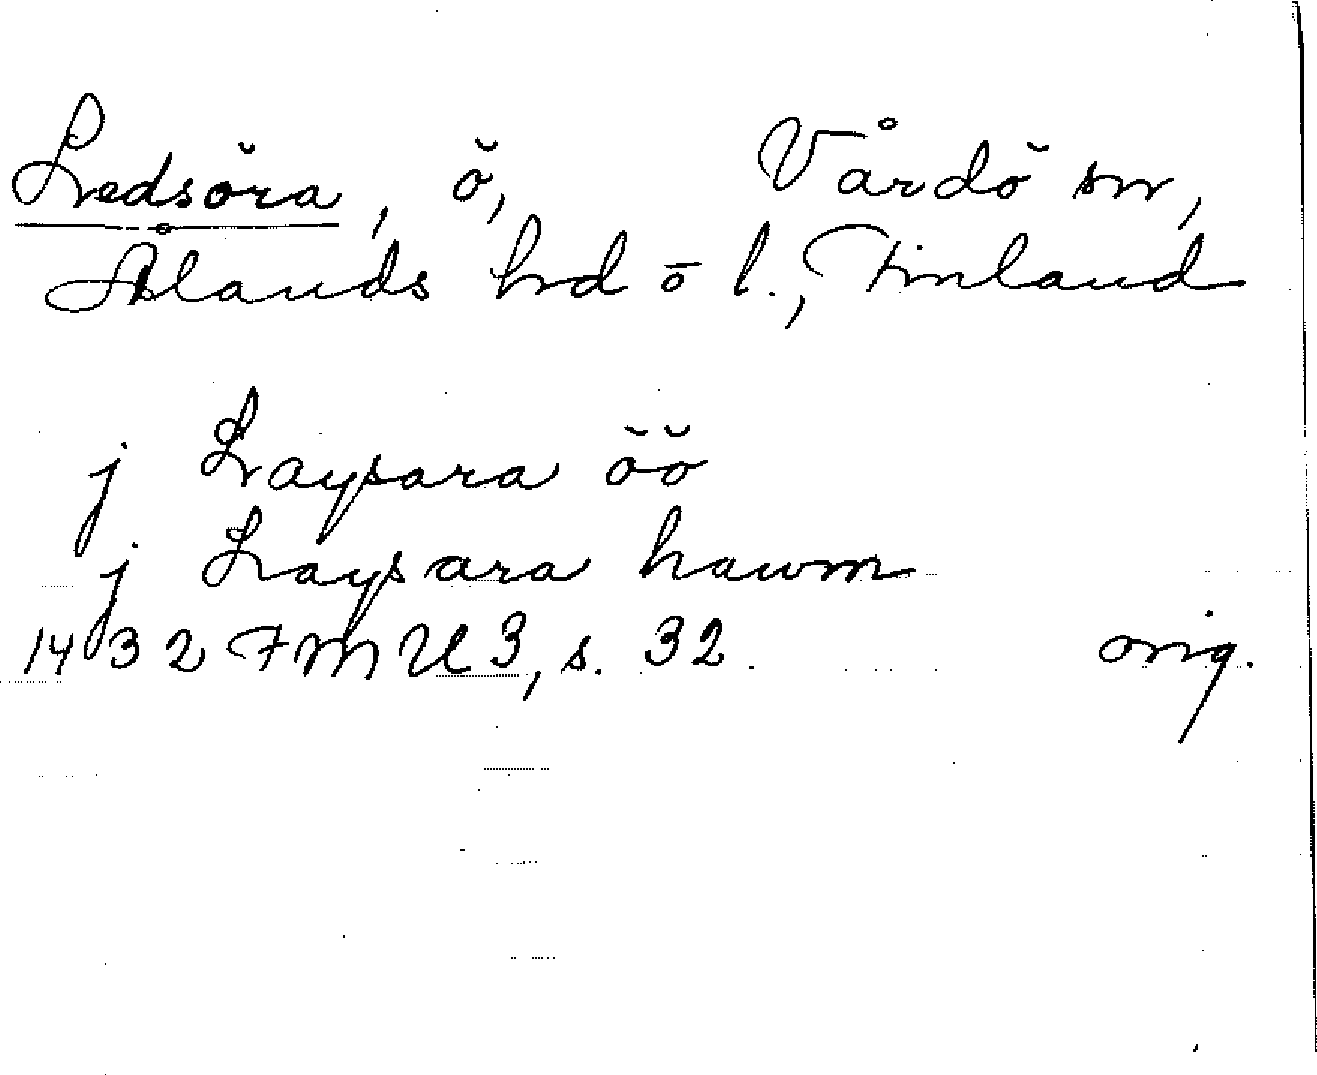 Ledsöra, ö, Vårdö sn,
Ålands hd o l., Finland
j Laysara öö
j Laysara hawm
1432 FMU 3, s. 32. orig.